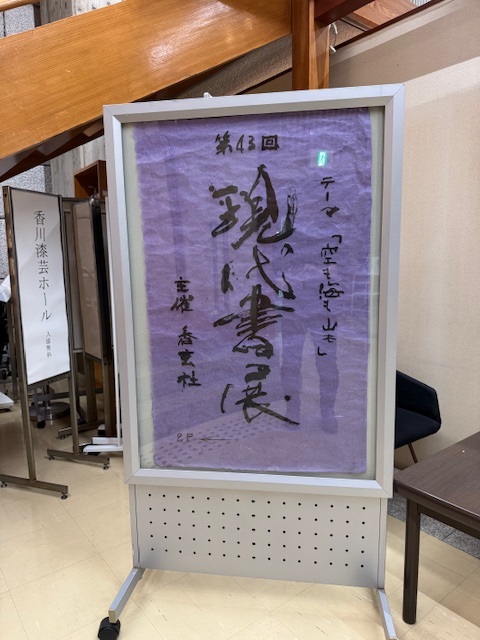 第43回
現代書展
テーマ「空も海も山も」
主催 香玄社
2F ←
香川漆芸ホール
入場無料